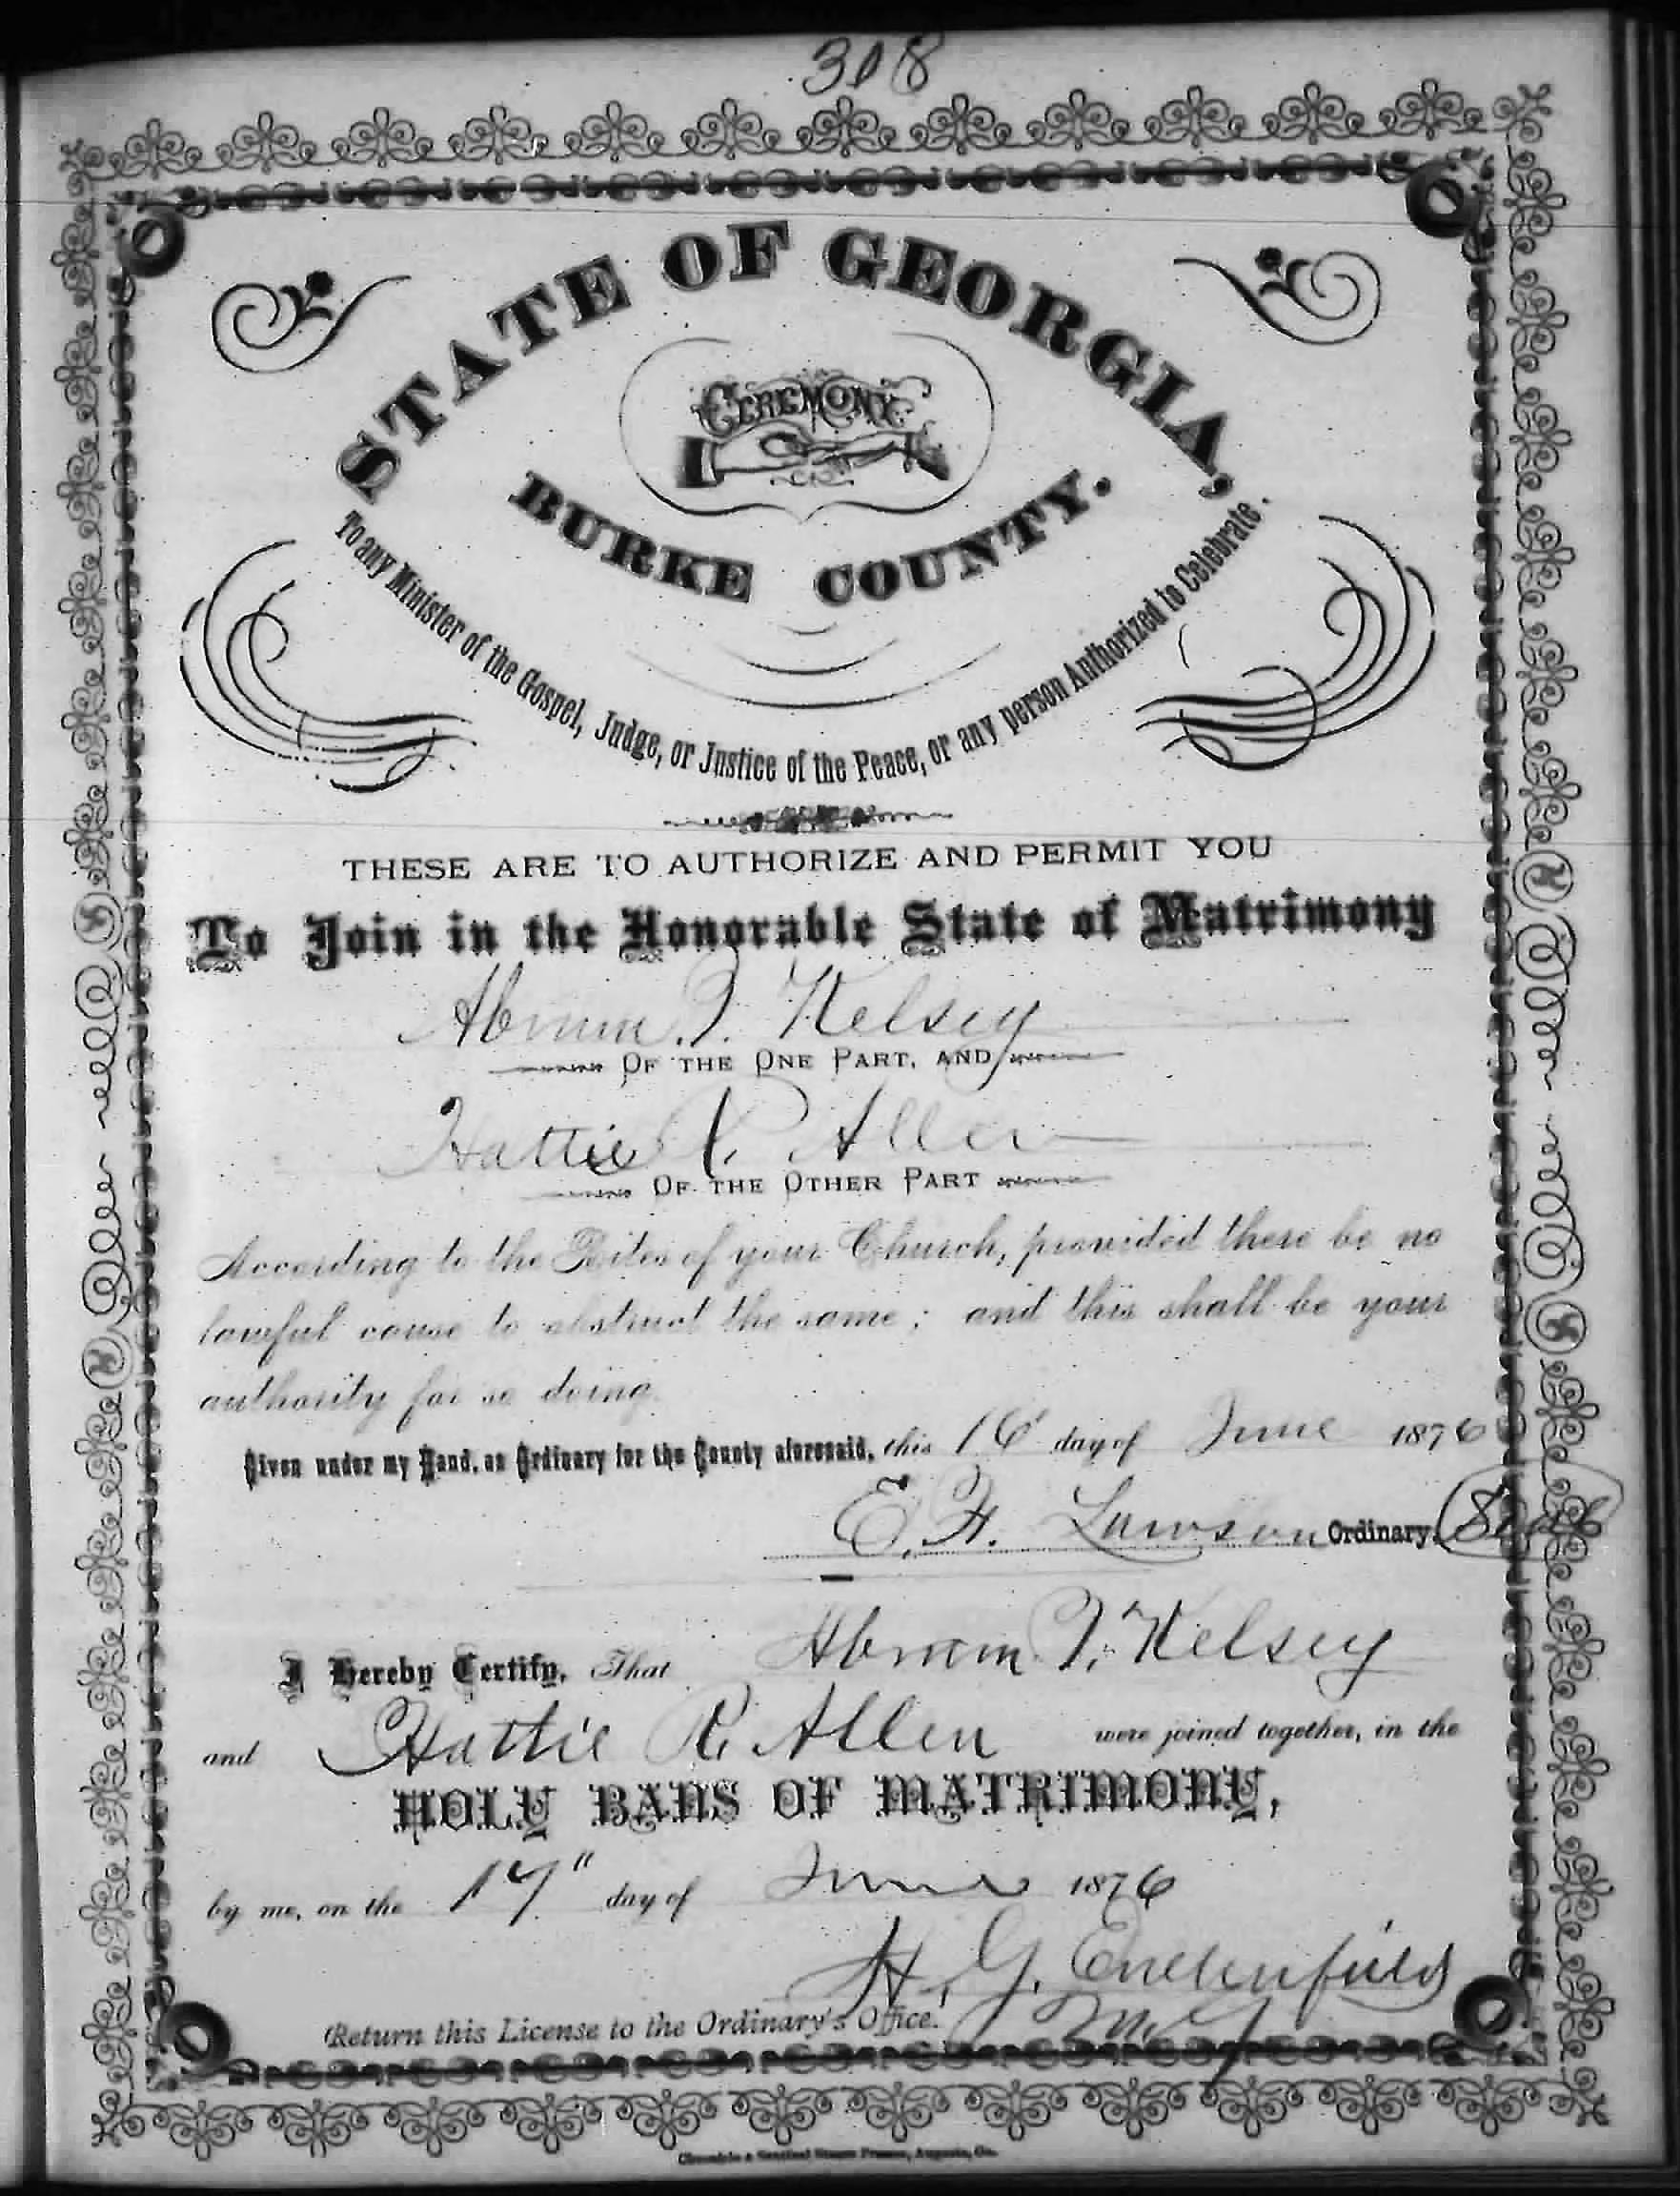 308
STATE OF GEORGIA,
CEREMONY
BURKE COUNTY.
To any Minister of the Gospel, Judge, or Justice of the Peace, or any person Authorized to Celebrate.
THESE ARE TO AUTHORIZE AND PERMIT YOU
To Join in the Honorable State of Matrimony
Abram Kelsey
OF THE ONE PART, AND
Hattie R. Allen
OF THE OTHER PART
According to the Rites of your Church, provided there be no
lawful cause to obstruct the same; and this shall be your
authority for so doing.
Given under my Hand, as Ordinary for the County aforesaid, this 16 day of June 1876
E. F. Lawson Ordinary. Seal
I Hereby Certify, That Abram Kelsey
and Hattie R. Allen were joined together, in the
HOLY BANS OF MATRIMONY,
by me, on the 17" day of June 1876
H. G.
Return this License to the Ordinary's Office.
Chronicle & Sentinel Steam Presses, Augusta, Ga.